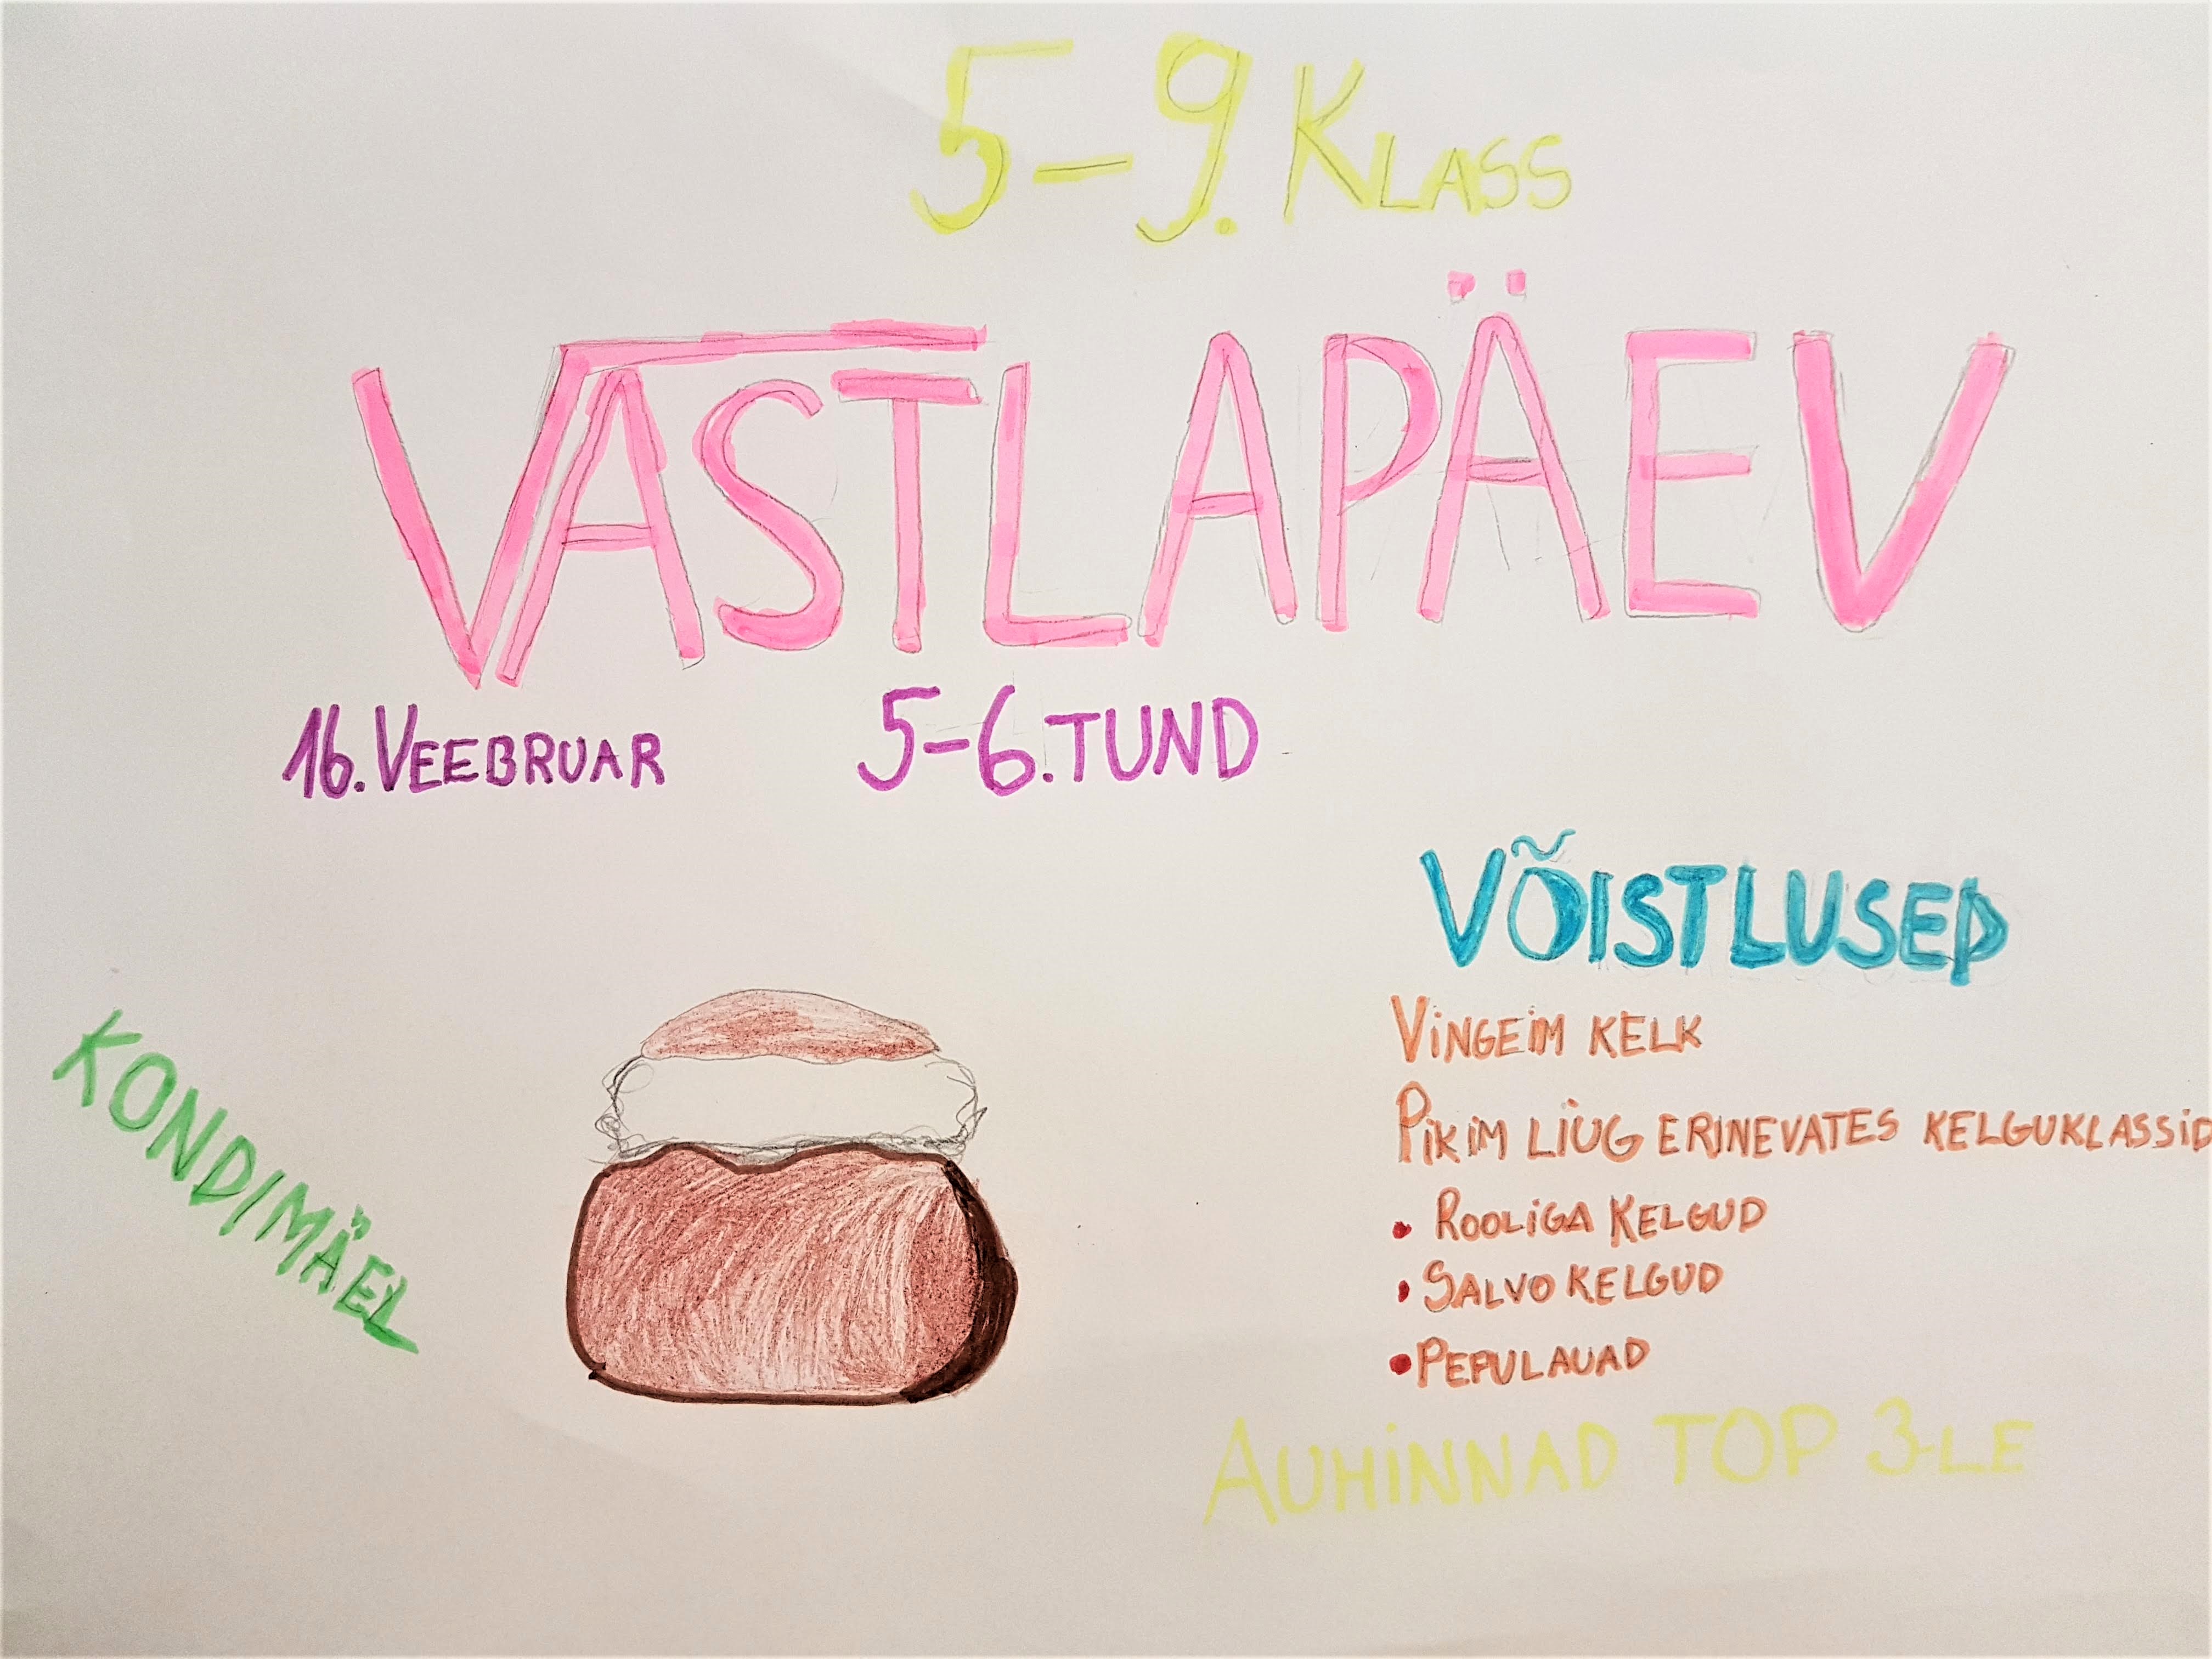 5-9. KLASS
VASTLAPÄEV
16. VEEBRUAR 5-6. TUND
VÕISTLUSED
KONDIMÄEL
VINGEIM KELK
PIKIM LIUG ERINEVATES KELGUKLASSID
• ROOLIGA KELGUD
• SALVO KELGUD
• PEPULAUAD
AUHINNAD TOP 3-LE